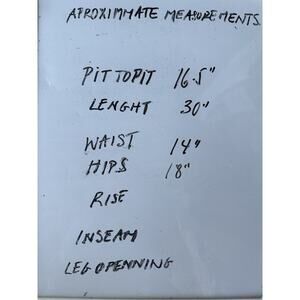 APROXIMMATE MEASUREMENTS.
PIT TO PIT 16.5"
LENGHT 30"
WAIST 14"
HIPS 18"
RISE
INSEAM
LEG OPENNING